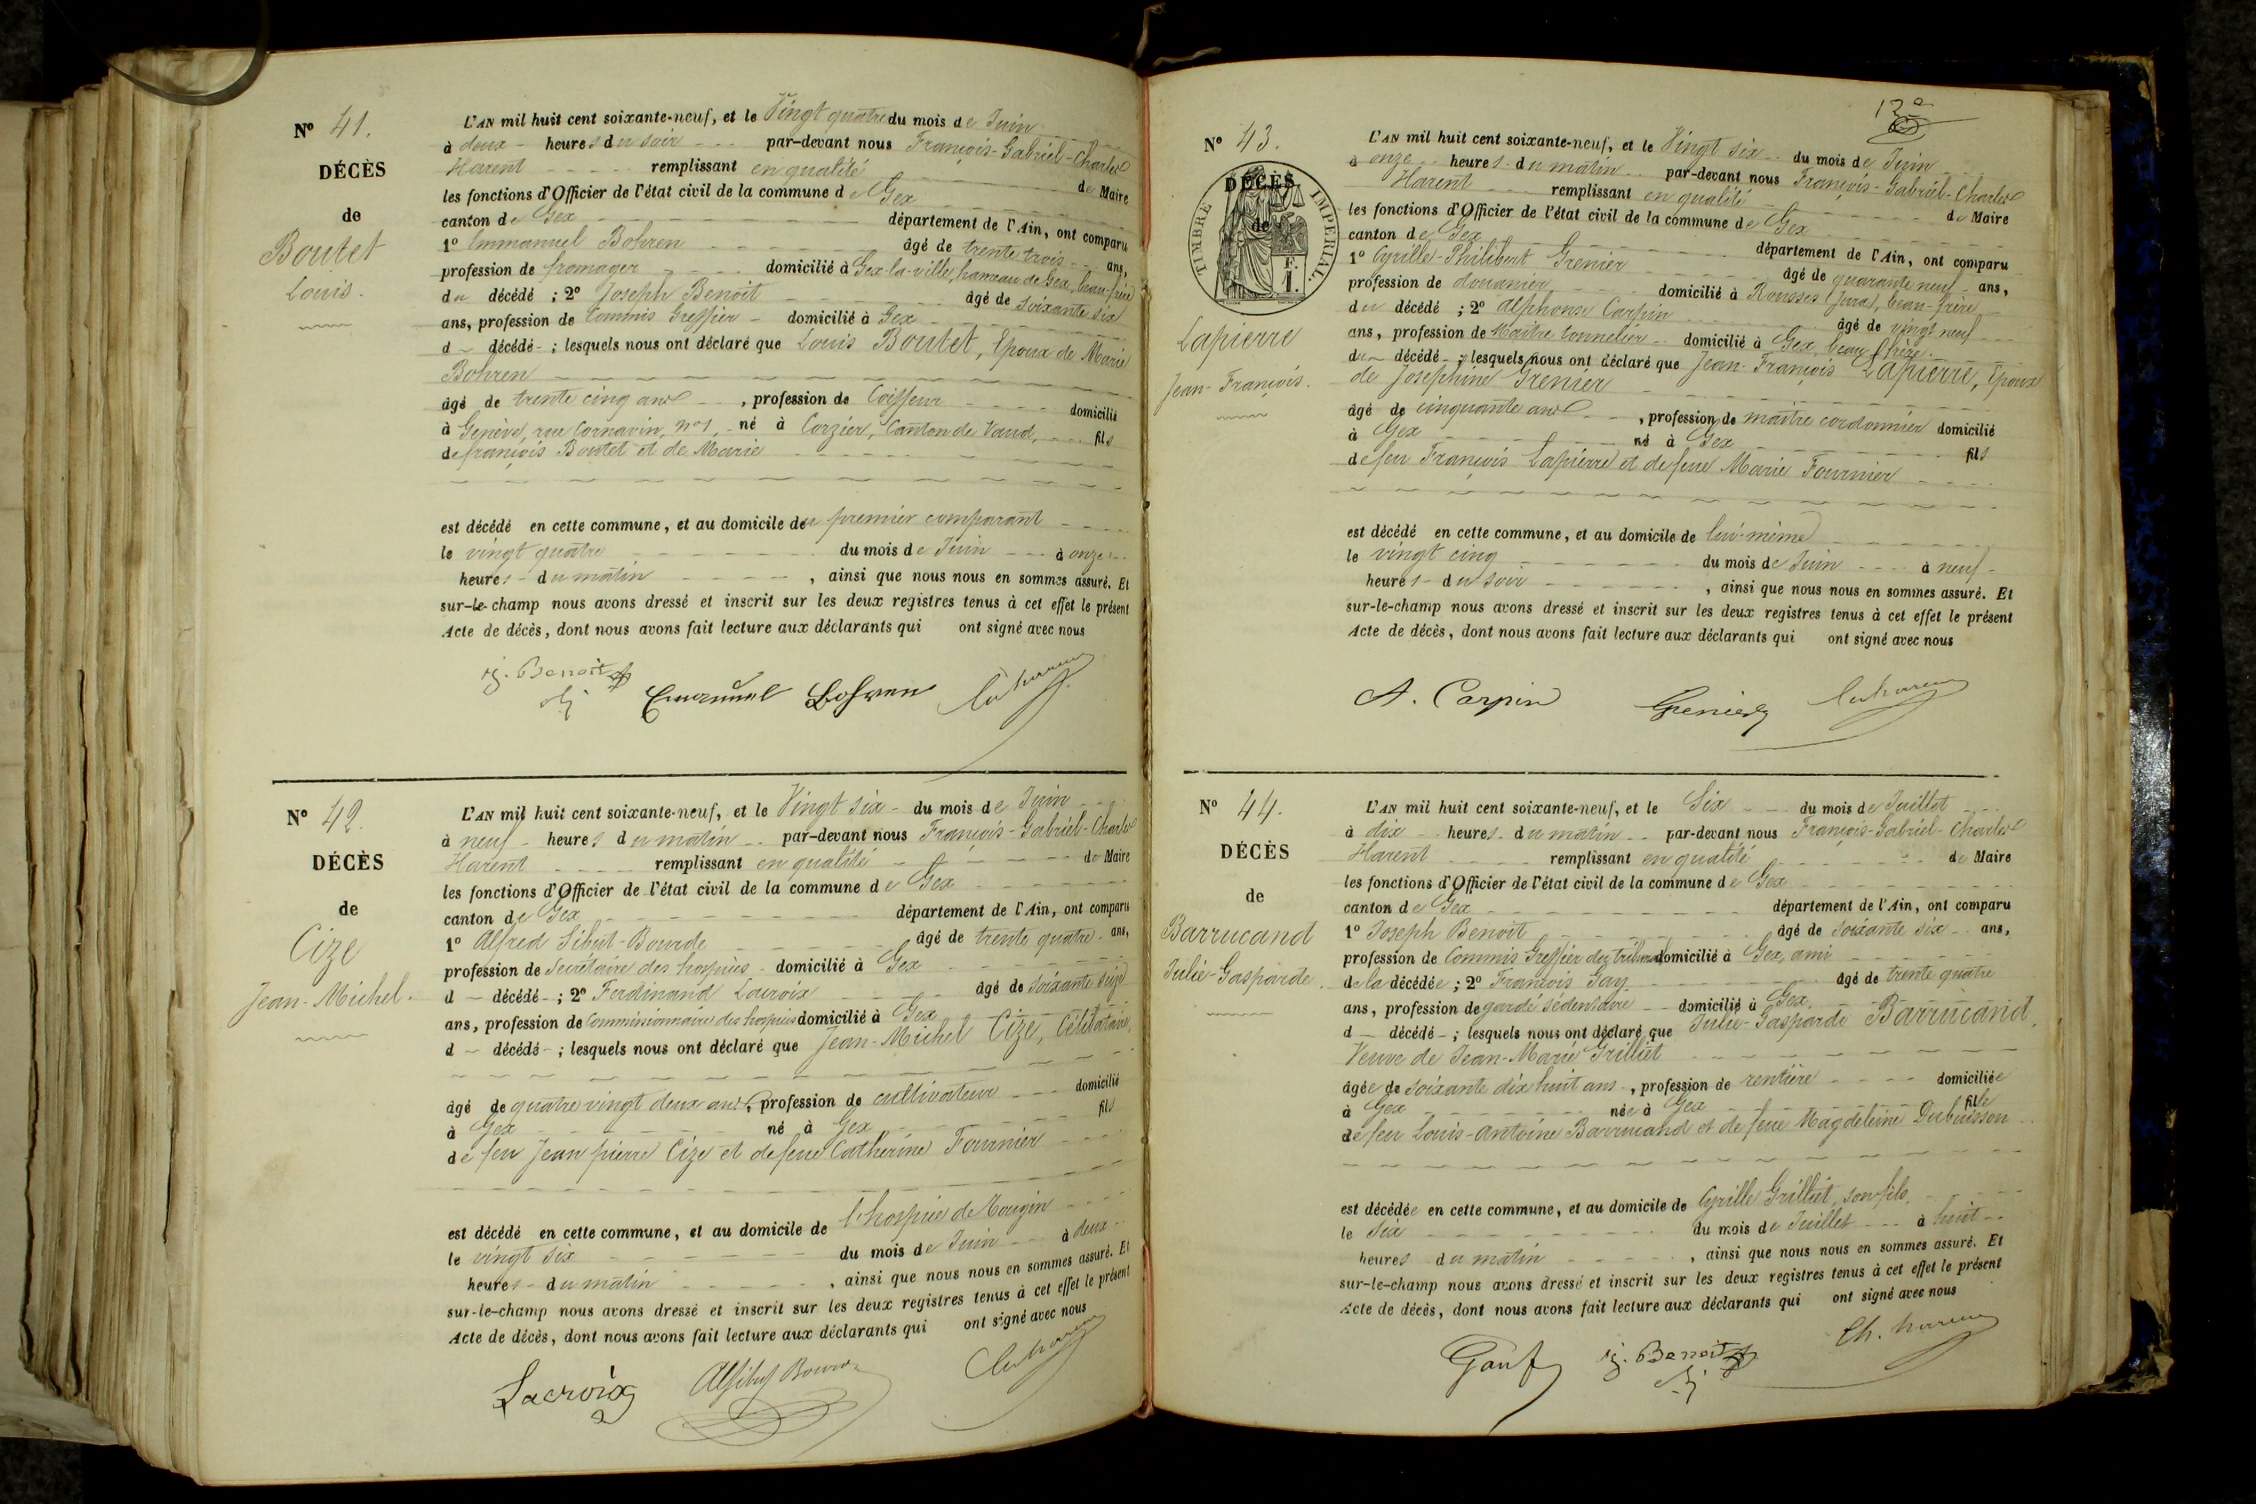 N° 41.
DÉCÈS
de
Boutet
Louis.
L'AN mil huit cent soixante-neuf, et le Vingt quatre du mois de Juin
à deux heures du soir par-devant nous François-Gabriel-Charles
Harent remplissant en qualité de Maire
les fonctions d'Officier de l'état civil de la commune de Gex
canton de Gex département de l'Ain, ont comparu
1° Emmanuel Bohren âgé de trente trois ans,
profession de fromager domicilié à Gex-la-ville, hameau de Gex, beau-frère
du décédé ; 2° Joseph Benoit âgé de soixante six
ans, profession de Commis Greffier domicilié à Gex
d décédé ; lesquels nous ont déclaré que Louis Boutet, Epoux de Marie
Bohren
âgé de trente cinq ans, profession de Coiffeur domicilié
à Genève, rue Cornavin, n° 1, né à Corzier, Canton de Vaud, fils
de françois Boutet et de Marie
est décédé en cette commune, et au domicile du premier comparant
le vingt quatre du mois de Juin à onze
heures du matin, ainsi que nous nous en sommes assuré. Et
sur-le-champ nous avons dressé et inscrit sur les deux registres tenus à cet effet le présent
Acte de décès, dont nous avons fait lecture aux déclarants qui ont signé avec nous
j. Benoit Emanuel Bohren
N° 42.
DÉCÈS
de
Cize
Jean-Michel.
L'AN mil huit cent soixante-neuf, et le Vingt six du mois de Juin
à neuf heures du matin par-devant nous François-Gabriel-Charles
Harent remplissant en qualité de Maire
les fonctions d'Officier de l'état civil de la commune de Gex
canton de Gex département de l'Ain, ont comparu
1° Alfred Sibut-Bourde âgé de trente quatre ans,
profession de Secrétaire des hospices domicilié à Gex
d décédé ; 2° Ferdinand Lacroix âgé de soixante seize
ans, profession de Commissionnaire des hospices domicilié à Gex
d décédé ; lesquels nous ont déclaré que Jean-Michel Cize, Célibataire,
âgé de quatre vingt deux ans, profession de cultivateur domicilié
à Gex né à Gex fils
de feu Jean pierre Cize et de feue Catherine Fournier
est décédé en cette commune, et au domicile de l'hospice de Tougin
le vingt six du mois de Juin à deux
heures du matin, ainsi que nous nous en sommes assuré. Et
sur-le-champ nous avons dressé et inscrit sur les deux registres tenus à cet effet le présent
Acte de décès, dont nous avons fait lecture aux déclarants qui ont signé avec nous
Lacroix
13e
N° 43.
TIMBRE IMPERIAL.
F.
1.
DÉCÈS
de
Lapierre
Jean-François.
L'AN mil huit cent soixante-neuf, et le Vingt six du mois de Juin
à onze heures du matin par-devant nous François-Gabriel-Charles
Harent remplissant en qualité de Maire
les fonctions d'Officier de l'état civil de la commune de Gex
canton de Gex département de l'Ain, ont comparu
1° Cyrille-Philibert Grenier âgé de quarante neuf ans,
profession de douanier domicilié à Rousses (Jura), beau-frère
du décédé ; 2° Alphonse Carpin âgé de vingt neuf
ans, profession de Maître tonnelier domicilié à Gex, beau frère.
du décédé ; lesquels nous ont déclaré que Jean-François Lapierre, Epoux
de Josephine Grenier
âgé de cinquante ans, profession de maître cordonnier domicilié
à Gex né à Gex fils
de feu François Lapierre et de feue Marie Fournier
est décédé en cette commune, et au domicile de lui-même
le vingt cinq du mois de Juin à neuf
heures du soir, ainsi que nous nous en sommes assuré. Et
sur-le-champ nous avons dressé et inscrit sur les deux registres tenus à cet effet le présent
Acte de décès, dont nous avons fait lecture aux déclarants qui ont signé avec nous
A. Carpin Grenier
N° 44.
DÉCÈS
de
Barrucand
Julie-Gasparde.
L'AN mil huit cent soixante-neuf, et le Six du mois de Juillet
à dix heures du matin par-devant nous François-Gabriel-Charles
Harent remplissant en qualité de Maire
les fonctions d'Officier de l'état civil de la commune de Gex
canton de Gex département de l'Ain, ont comparu
1° Joseph Benoit âgé de soixante six ans,
profession de Commis Greffier du tribunal domicilié à Gex, ami
de la décédée ; 2° François Gay âgé de trente quatre
ans, profession de garde sédentaire domicilié à Gex,
d décédé ; lesquels nous ont déclaré que Julie-Gasparde Barrucand,
Veuve de Jean-Marie Grilliet
âgée de soixante dix huit ans, profession de rentière domiciliée
à Gex née à Gex fille
de feu Louis-Antoine Barrucand et de feue Magdeleine Dubuisson
est décédée en cette commune, et au domicile de Cyrille Grilliet, son fils,
le Six du mois de Juillet à huit
heures du matin, ainsi que nous nous en sommes assuré. Et
sur-le-champ nous avons dressé et inscrit sur les deux registres tenus à cet effet le présent
Acte de décès, dont nous avons fait lecture aux déclarants qui ont signé avec nous
j. Benoit Ch. harent